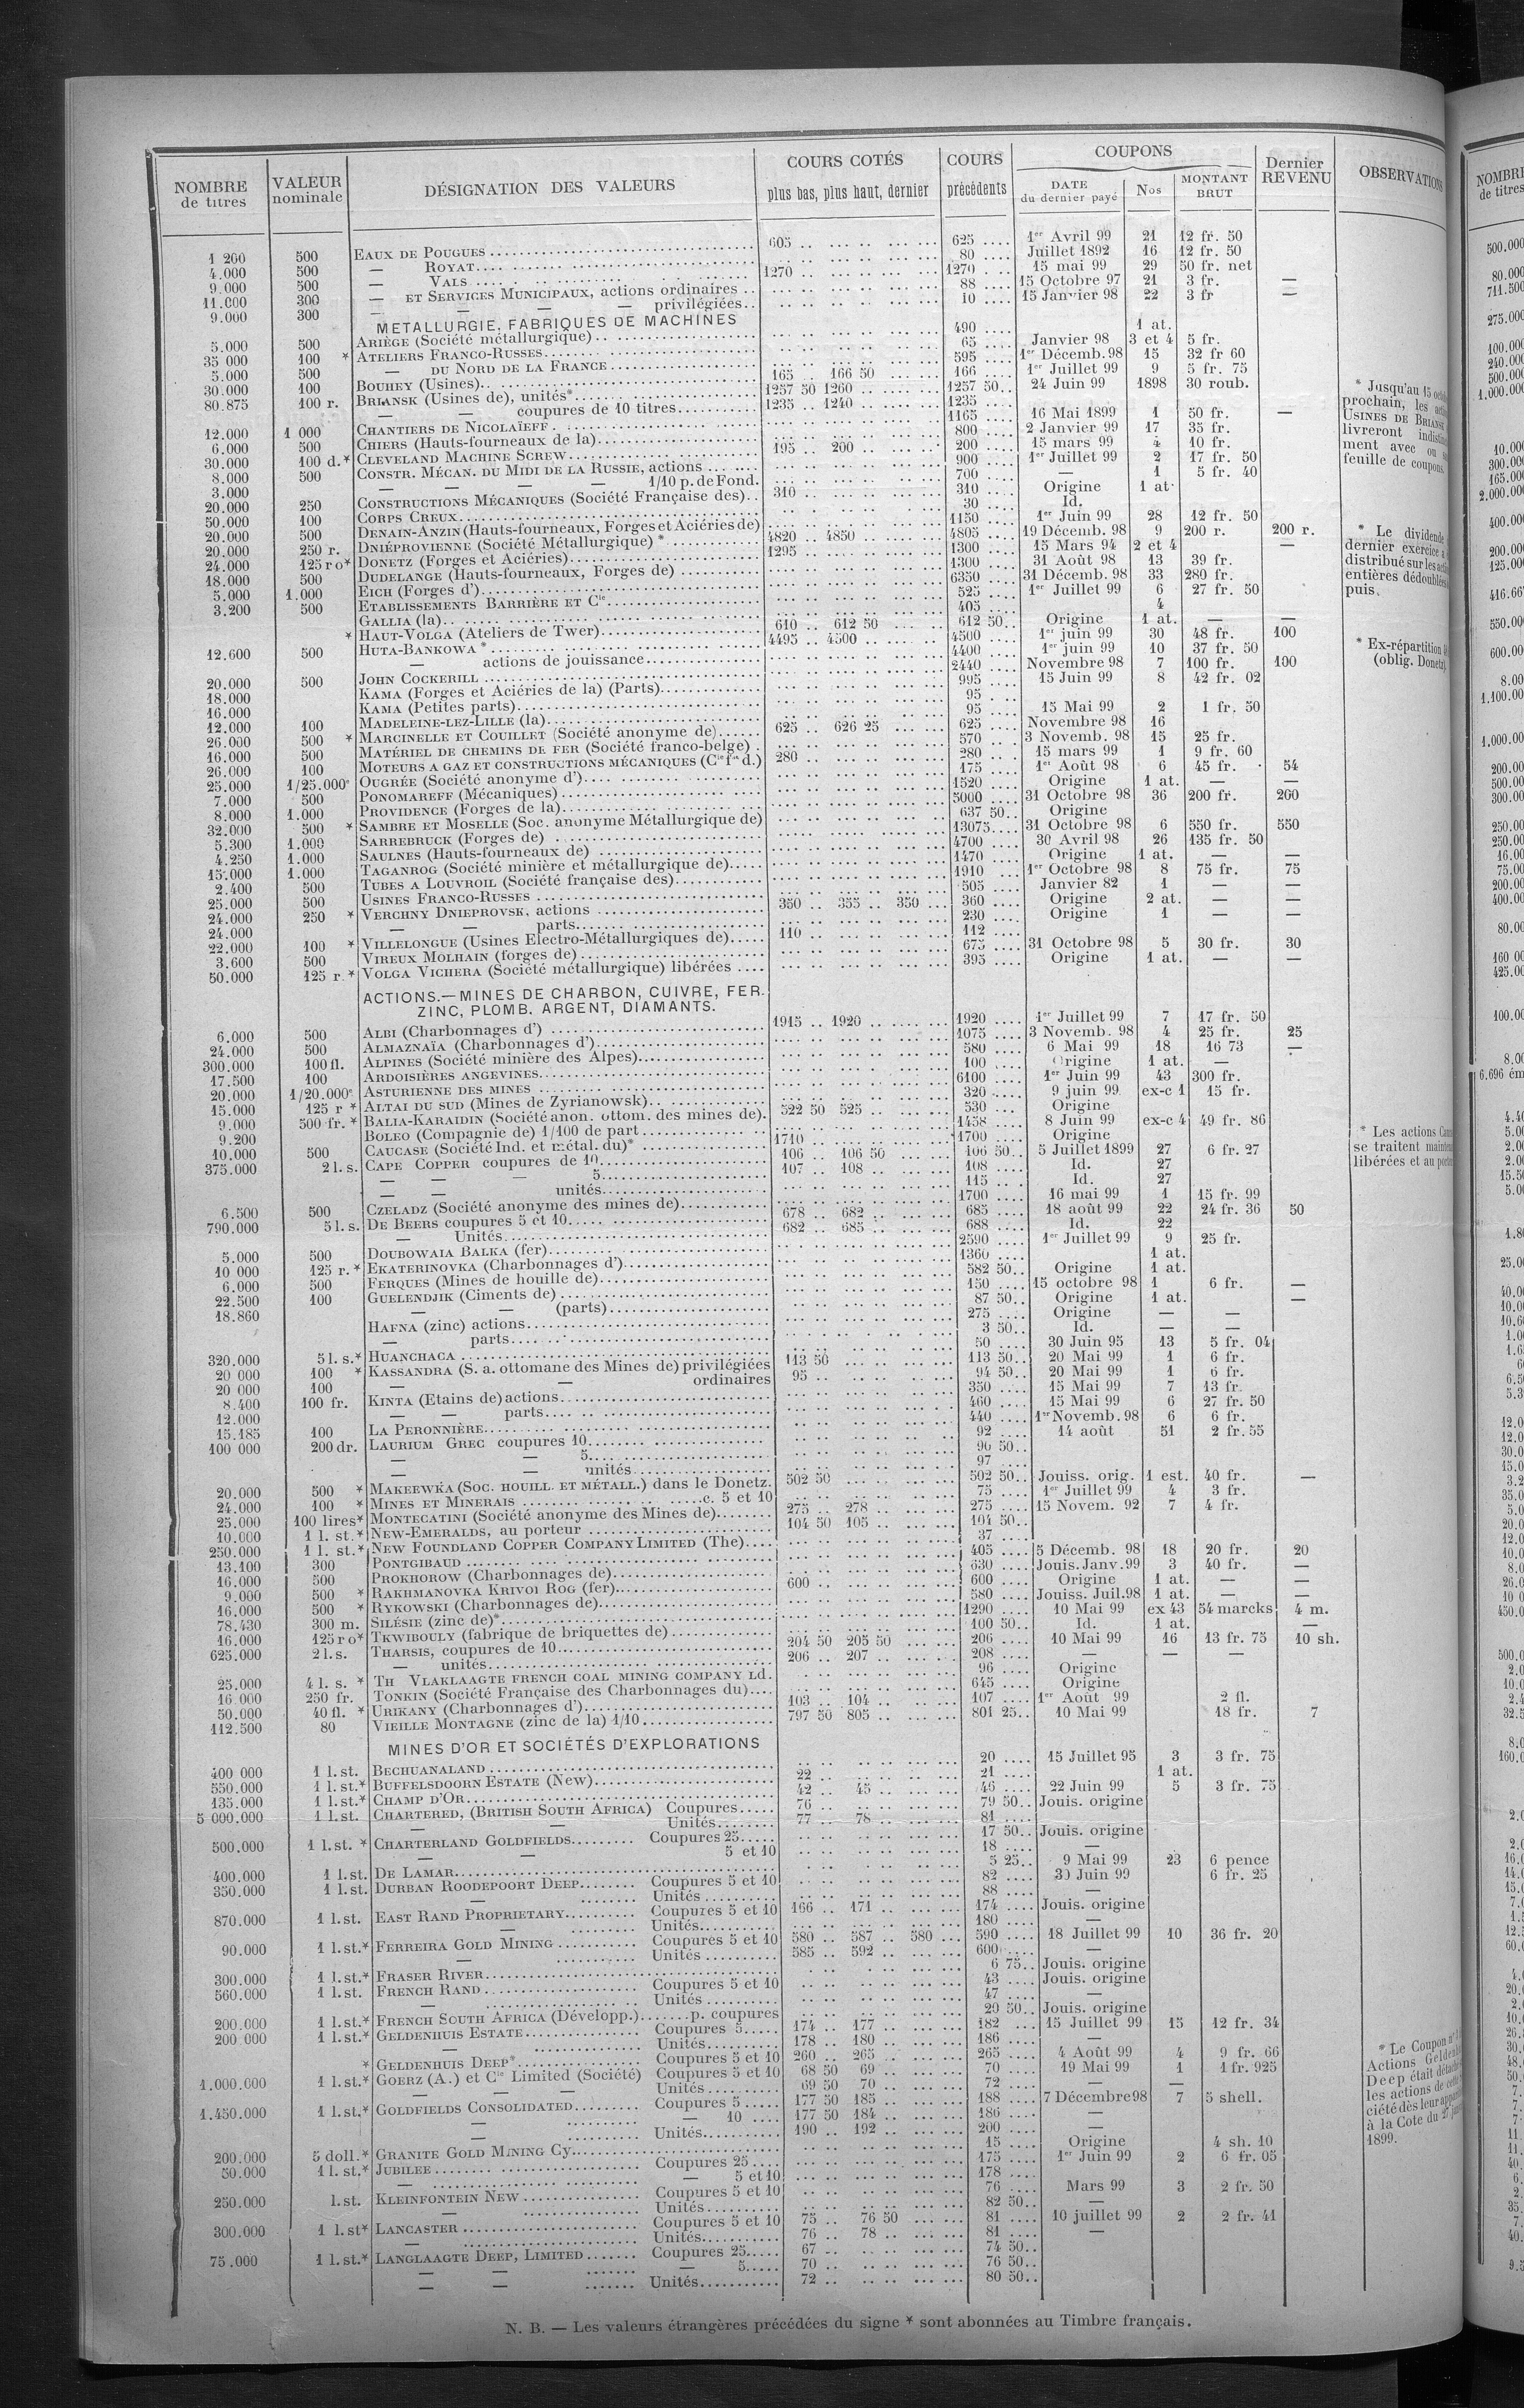 NOMBRE de titres | VALEUR nominale | DÉSIGNATION DES VALEURS | COURS COTÉS plus bas, plus haut, dernier | COURS précédents | COUPONS DATE du dernier payé | Nos | MONTANT BRUT | Dernier REVENU | OBSERVATIONS
1 200 500 EAUX DE POUGUES 605 .. 625 .... 1er Avril 99 21 12 fr. 50
4.000 500 — ROYAT 80 .... Juillet 1892 16 12 fr. 50
9.000 500 — VALS 1270 .. 1270 .... 15 mai 99 29 50 fr. net
11.000 300 — ET SERVICES MUNICIPAUX, actions ordinaires 88 .... 15 Octobre 97 21 3 fr. —
9.000 300 — — — privilégiées 10 .... 15 Janvier 98 22 3 fr —
METALLURGIE, FABRIQUES DE MACHINES
5.000 500 ARIÈGE (Société métallurgique) 490 .... 1 at.
35 000 100 * ATELIERS FRANCO-RUSSES 65 .... Janvier 98 3 et 4 5 fr.
5.000 500 — DU NORD DE LA FRANCE 595 .... 1er Décemb. 98 15 32 fr 60
30.000 100 BOUHEY (Usines) 165 .. 166 50 166 .... 1er Juillet 99 9 5 fr. 75
80.875 100 r. BRIANSK (Usines de), unités* 1257 50 1260 .. 1257 50.. 24 Juin 99 1898 30 roub.
— — coupures de 10 titres 1235 .. 1240 .. 1235 ....
12.000 1 000 CHANTIERS DE NICOLAÏEFF 1165 .... 16 Mai 1899 1 50 fr. —
6.000 500 CHIERS (Hauts-fourneaux de la) 800 .... 2 Janvier 99 17 35 fr.
30.000 100 d.* CLEVELAND MACHINE SCREW 195 .. 200 .. 200 .... 15 mars 99 4 10 fr.
8.000 500 CONSTR. MÉCAN. DU MIDI DE LA RUSSIE, actions 900 .... 1er Juillet 99 2 17 fr. 50
3.000 — — — — 1/10 p. de Fond. 700 .... — 1 5 fr. 40
20.000 250 CONSTRUCTIONS MÉCANIQUES (Société Française des) 310 .. 310 .... Origine 1 at.
50.000 100 CORPS CREUX 30 .... Id.
20.000 500 DENAIN-ANZIN (Hauts-fourneaux, Forges et Aciéries de) 1150 .... 1er Juin 99 28 12 fr. 50
20.000 250 r. DNIÉPROVIENNE (Société Métallurgique) * 4820 .. 4850 .. 4805 .... 19 Décemb. 98 9 200 r. 200 r.
24.000 125 r o* DONETZ (Forges et Aciéries) 1295 .. 1300 .... 15 Mars 94 2 et 4 —
18.000 500 DUDELANGE (Hauts-fourneaux, Forges de) 1300 .... 31 Août 98 13 39 fr.
5.000 1.000 EICH (Forges d') 6350 .... 31 Décemb. 98 33 280 fr.
3.200 500 ETABLISSEMENTS BARRIÈRE ET Cie 525 .... 1er Juillet 99 6 27 fr. 50
GALLIA (la) 405 .... 4
* HAUT-VOLGA (Ateliers de Twer) 610 .. 612 50 612 50.. Origine 1 at. — —
12.600 500 HUTA-BANKOWA * 4495 .. 4500 .. 4500 .... 1er juin 99 30 48 fr. 100
— actions de jouissance 4400 .... 1er juin 99 10 37 fr. 50
20.000 500 JOHN COCKERILL 2440 .... Novembre 98 7 100 fr. 100
18.000 KAMA (Forges et Aciéries de la) (Parts) 995 .... 15 Juin 99 8 42 fr. 02
16.000 KAMA (Petites parts) 95 ....
12.000 100 MADELEINE-LEZ-LILLE (la) 95 .... 15 Mai 99 2 1 fr. 50
26.000 500 * MARCINELLE ET COUILLET (Société anonyme de) 625 .. 626 25 625 .... Novembre 98 16
16.000 500 MATÉRIEL DE CHEMINS DE FER (Société franco-belge) 570 .... 3 Novemb. 98 15 25 fr.
26.000 100 MOTEURS A GAZ ET CONSTRUCTIONS MÉCANIQUES (Cie fse d.) 280 .. 280 .... 15 mars 99 1 9 fr. 60
25.000 1/25.000e OUGRÉE (Société anonyme d') 175 .... 1er Août 98 6 45 fr. 54
7.000 500 PONOMAREFF (Mécaniques) 1520 .... Origine 1 at. — —
8.000 1.000 PROVIDENCE (Forges de la) 5000 .... 31 Octobre 98 36 200 fr. 200
32.000 500 * SAMBRE ET MOSELLE (Soc. anonyme Métallurgique de) 637 50.. Origine
5.300 1.000 SARREBRUCK (Forges de) 13075.... 31 Octobre 98 6 550 fr. 550
4.250 1.000 SAULNES (Hauts-fourneaux de) 4700 .... 30 Avril 98 26 135 fr. 50
15.000 1.000 TAGANROG (Société minière et métallurgique de) 1470 .... Origine 1 at. — —
2.400 500 TUBES A LOUVROIL (Société française des) 1910 .... 1er Octobre 98 8 75 fr. 75
25.000 500 USINES FRANCO-RUSSES 505 .... Janvier 82 1 — —
24.000 250 * VERCHNY DNIEPROVSK, actions 350 .. 355 .. 350 ... 360 .... Origine 2 at. — —
24.000 — — parts 230 .... Origine 1 — —
22.000 100 * VILLELONGUE (Usines Electro-Métallurgiques de) 110 .. 112 ....
3.600 500 VIREUX MOLHAIN (forges de) 675 .... 31 Octobre 98 5 30 fr. 30
50.000 125 r.* VOLGA VICHERA (Société métallurgique) libérées 395 .... Origine 1 at. — —
ACTIONS.—MINES DE CHARBON, CUIVRE, FER.
ZINC, PLOMB, ARGENT, DIAMANTS.
6.000 500 ALBI (Charbonnages d') 1915 .. 1920 .. 1920 .... 1er Juillet 99 7 17 fr. 50
24.000 500 ALMAZNAÏA (Charbonnages d') 1075 .... 3 Novemb. 98 4 25 fr. 25
300.000 100 fl. ALPINES (Société minière des Alpes) 580 .... 6 Mai 99 18 16 73 —
17.500 100 ARDOISIÈRES ANGEVINES 100 .... Origine 1 at. —
20.000 1/20.000e ASTURIENNE DES MINES 6100 .... 1er Juin 99 43 300 fr.
15.000 125 r * ALTAI DU SUD (Mines de Zyrianowsk) 320 .... 9 juin 99 ex-c 1 15 fr.
9.000 500 fr. * BALIA-KARAIDIN (Société anon. ottom. des mines de) 522 50 525 .. 530 ... Origine
9.200 BOLEO (Compagnie de) 1/100 de part 1458 .... 8 Juin 99 ex-c 4 49 fr. 86
10.000 500 CAUCASE (Société Ind. et métal. du)* 1710 .. 1700 .... Origine
375.000 2 l. s. CAPE COPPER coupures de 10 106 .. 106 50 106 50.. 5 Juillet 1899 27 6 fr. 27
— — — 5 107 .. 108 .. 108 .... Id. 27
— — unités 115 .... Id. 27
6.500 500 CZELADZ (Société anonyme des mines de) 1700 .... 16 mai 99 1 15 fr. 99
790.000 5 l. s. DE BEERS coupures 5 et 10 678 .. 682 .. 685 .... 18 août 99 22 24 fr. 36 50
— Unités 682 .. 685 .. 688 .... Id. 22
5.000 500 DOUBOWAIA BALKA (fer) 2590 .... 1er Juillet 99 9 25 fr.
10 000 125 r. * EKATERINOVKA (Charbonnages d') 1360 .... 1 at.
6.000 500 FERQUES (Mines de houille de) 582 50.. Origine 1 at.
22.500 100 GUELENDJIK (Ciments de) 150 .... 15 octobre 98 1 6 fr. —
18.860 — — (parts) 87 50.. Origine 1 at. —
HAFNA (zinc) actions 275 .... Origine — —
— parts 3 50.. Id. — —
320.000 5 l. s.* HUANCHACA 50 .... 30 Juin 95 13 5 fr. 04
20 000 100 * KASSANDRA (S. a. ottomane des Mines de) privilégiées 113 50 113 50.. 20 Mai 99 1 6 fr.
20 000 100 — — ordinaires 95 .. 94 50.. 20 Mai 99 1 6 fr.
8.400 100 fr. KINTA (Etains de) actions 350 .... 15 Mai 99 7 13 fr.
12.000 — — parts 460 .... 15 Mai 99 6 27 fr. 50
15.185 100 LA PERONNIÈRE 440 .... 1er Novemb. 98 6 6 fr.
100 000 200 dr. LAURIUM GREC coupures 10 92 .... 14 août 51 2 fr. 55
— — 5 96 50..
— — unités 97 ....
20.000 500 * MAKEEWKA (SOC. HOUILL. ET MÉTALL.) dans le Donetz. 502 50 502 50.. Jouiss. orig. 1 est. 40 fr. —
24.000 100 * MINES ET MINERAIS c. 5 et 10 75 .... 1er Juillet 99 4 3 fr.
25.000 100 lires* MONTECATINI (Société anonyme des Mines de) 275 .. 278 .. 275 .... 15 Novem. 92 7 4 fr.
10.000 1 l. st.* NEW-EMERALDS, au porteur 104 50 105 .. 104 50..
250.000 1 l. st.* NEW FOUNDLAND COPPER COMPANY LIMITED (The) 37 ....
13.100 300 PONTGIBAUD 405 .... 5 Décemb. 98 18 20 fr. 20
16.000 500 PROKHOROW (Charbonnages de) 630 .... Jouis. Janv. 99 3 40 fr. —
9.000 500 * RAKHMANOVKA KRIVOI ROG (fer) 600 .. 600 .... Origine 1 at. — —
16.000 500 * RYKOWSKI (Charbonnages de) 580 .... Jouiss. Juil. 98 1 at. — —
78.430 300 m. SILÉSIE (zinc de)* 1290 .... 10 Mai 99 ex 43 54 marcks 4 m.
16.000 125 r o* TKWIBOULY (fabrique de briquettes de) 100 50.. Id. 1 at. —
625.000 2 l. s. THARSIS, coupures de 10 204 50 205 50 206 .... 10 Mai 99 16 13 fr. 75 10 sh.
— unités 206 .. 207 .. 208 .... — — —
25.000 4 l. s. * TH VLAKLAAGTE FRENCH COAL MINING COMPANY Ld. 96 .... Origine
16 000 250 fr. TONKIN (Société Française des Charbonnages du) 645 .... Origine
50.000 40 fl. * URIKANY (Charbonnages d') 103 .. 104 .. 107 .... 1er Août 99 2 fl.
112.500 80 VIEILLE MONTAGNE (zinc de la) 1/10 797 50 805 .. 801 25.. 10 Mai 99 18 fr. 7
MINES D'OR ET SOCIÉTÉS D'EXPLORATIONS
400 000 1 l. st. BECHUANALAND 20 .... 15 Juillet 95 3 3 fr. 75
550.000 1 l. st.* BUFFELSDOORN ESTATE (New) 22 .. 21 .... 1 at.
135.000 1 l. st.* CHAMP D'OR 42 .. 45 .. 46 .... 22 Juin 99 5 3 fr. 75
5 000.000 1 l. st. CHARTERED, (BRITISH SOUTH AFRICA) Coupures 76 .. 79 50.. Jouis. origine
— — Unités 77 .. 78 .. 81 ....
500.000 1 l. st. * CHARTERLAND GOLDFIELDS Coupures 25 17 50.. Jouis. origine
— — 5 et 10 18 .... —
400.000 1 l. st. DE LAMAR 5 25.. 9 Mai 99 23 6 pence
350.000 1 l. st. DURBAN ROODEPOORT DEEP Coupures 5 et 10 82 .... 30 Juin 99 6 fr. 25
— Unités 88 .... —
870.000 1 l. st. EAST RAND PROPRIETARY Coupures 5 et 10 166 .. 171 .. 174 .... Jouis. origine
— Unités 180 .... —
90.000 1 l. st.* FERREIRA GOLD MINING Coupures 5 et 10 580 .. 587 .. 580 ... 590 .... 18 Juillet 99 10 36 fr. 20
— Unités 585 .. 592 .. 600 .... —
300.000 1 l. st.* FRASER RIVER 6 75.. Jouis. origine
560.000 1 l. st. FRENCH RAND Coupures 5 et 10 43 .... Jouis. origine
— Unités 47 .... —
200.000 1 l. st.* FRENCH SOUTH AFRICA (Développ.) p. coupures 29 50.. Jouis. origine
200 000 1 l. st.* GELDENHUIS ESTATE Coupures 5 174 .. 177 .. 182 ... 15 Juillet 99 15 12 fr. 34
— Unités 178 .. 180 .. 186 .... —
* GELDENHUIS DEEP* Coupures 5 et 10 260 .. 265 .. 265 .... 4 Août 99 4 9 fr. 66
1.000.000 1 l. st.* GOERZ (A.) et Cie Limited (Société) Coupures 5 et 10 68 50 69 .. 70 .... 19 Mai 99 1 1 fr. 925
— — — Unités 69 50 70 .. 72 .... — —
1.450.000 1 l. st.* GOLDFIELDS CONSOLIDATED Coupures 5 177 50 185 .. 188 .... 7 Décembre 98 7 5 shell.
— — 10 177 50 184 .. 186 .... —
— Unités 190 .. 192 .. 200 .... —
200.000 5 doll.* GRANITE GOLD MINING Cy 15 .... Origine 4 sh. 10
50.000 1 l. st.* JUBILEE Coupures 25 175 .... 1er Juin 99 2 6 fr. 05
— — 5 et 10 178 ....
250.000 l. st. KLEINFONTEIN NEW Coupures 5 et 10 76 .... Mars 99 3 2 fr. 50
— Unités 82 50.. —
300.000 1 l. st* LANCASTER Coupures 5 et 10 75 .. 76 50 81 .... 10 juillet 99 2 2 fr. 41
— Unités 76 .. 78 .. 81 .... —
75.000 1 l. st.* LANGLAAGTE DEEP, LIMITED Coupures 25 67 .. 74 50..
— — — 5 70 .. 76 50..
— — Unités 72 .. 80 50..
* Jusqu'au 15
prochain, les
USINES DE BRIANSK
livreront
ment avec ou
feuille de coupons.
* Le dividende
dernier exercice a
distribué sur les
entières dédoublées
puis.
* Ex-répartition
(oblig. Donetz).
* Les actions
se traitent
libérées et au
* Le Coupon
Actions
Deep était détaché
les actions de cette
ciété dès leur
à la Cote du 27
1899.
N. B. — Les valeurs étrangères précédées du signe * sont abonnées au Timbre français.
NOMBRE
de titres